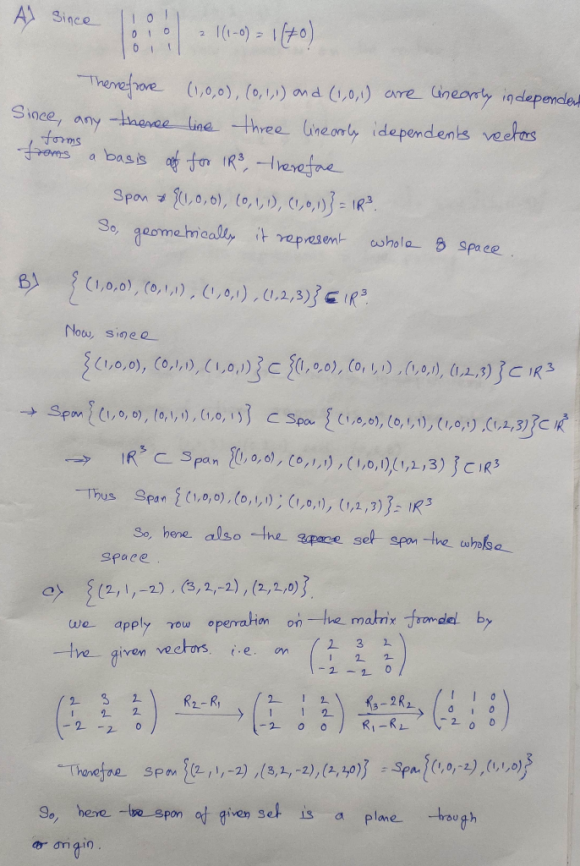 A) Since | 1 0 1 | 0 1 0 | 0 1 1 | = 1(1-0) = 1 (≠0)
Therefroe (1,0,0), (0,1,1) and (1,0,1) are linearly independent
Since, any three linearly idependents vectors
forms a basis for IR³, therefoe
Span {(1,0,0), (0,1,1), (1,0,1)} = IR³.
So, geometrically it represent whole space.
B) { (1,0,0), (0,1,1), (1,0,1), (1,2,3)} ⊆ IR³.
Now, since
{(1,0,0), (0,1,1), (1,0,1)} ⊂ {(1,0,0), (0,1,1), (1,0,1), (1,2,3)} ⊂ IR³
→ Span{(1,0,0), (0,1,1), (1,0,1)} ⊂ Spa {(1,0,0), (0,1,1), (1,0,1), (1,2,3)} ⊂ IR³
⇒ IR³ ⊂ Span {(1,0,0), (0,1,1), (1,0,1)(1,2,3)} ⊂ IR³
Thus Span {(1,0,0), (0,1,1); (1,0,1), (1,2,3)} = IR³
So, here also the set span the whole
space.
c) {(2,1,-2), (3,2,-2), (2,2,0)}.
we apply row operration on the matrix fromded by
the given vectors. i.e. on ( 2 3 2 | 1 2 2 | -2 -2 0 )
( 2 3 2 | 1 2 2 | -2 -2 0 ) R2-R1 → ( 2 1 2 | 1 1 2 | -2 0 0 ) R3-2R2 R1-R2 → ( 1 1 0 | 0 1 0 | -2 0 0 )
Therefoe span{(2,1,-2), (3,2,-2), (2,2,0)} = Spa{(1,0,-2), (1,1,0)}
So, here the span of given set is a plane trough
origin.